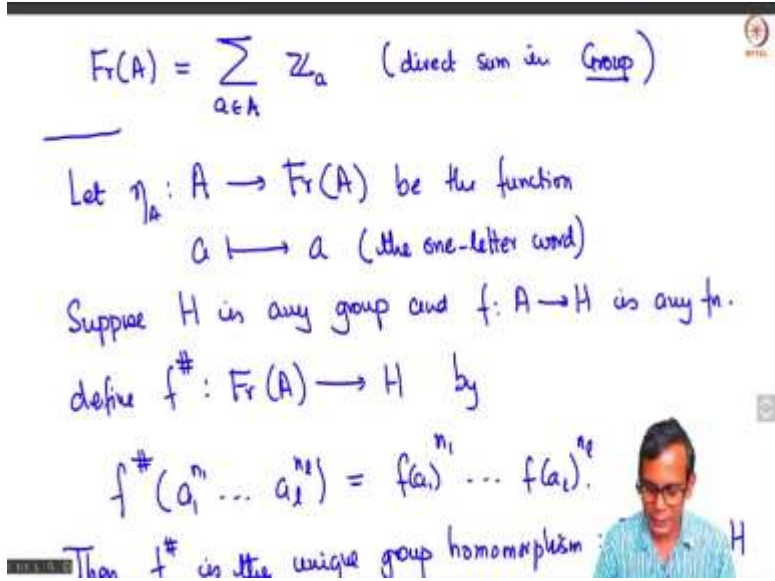 Fr(A) = ∑ ℤₐ (direct sum in Group)
a∈A
Let η_A : A ⟶ Fr(A) be the function
a ⟼ a (the one-letter word)
Suppose H is any group and f: A→H is any fn.
define f^# : Fr(A) ⟶ H by
f^#(a₁^{n₁} ... a_ℓ^{n_ℓ}) = f(a₁)^{n₁} ... f(a_ℓ)^{n_ℓ}.
Then f^# is the unique group homomorphism : H